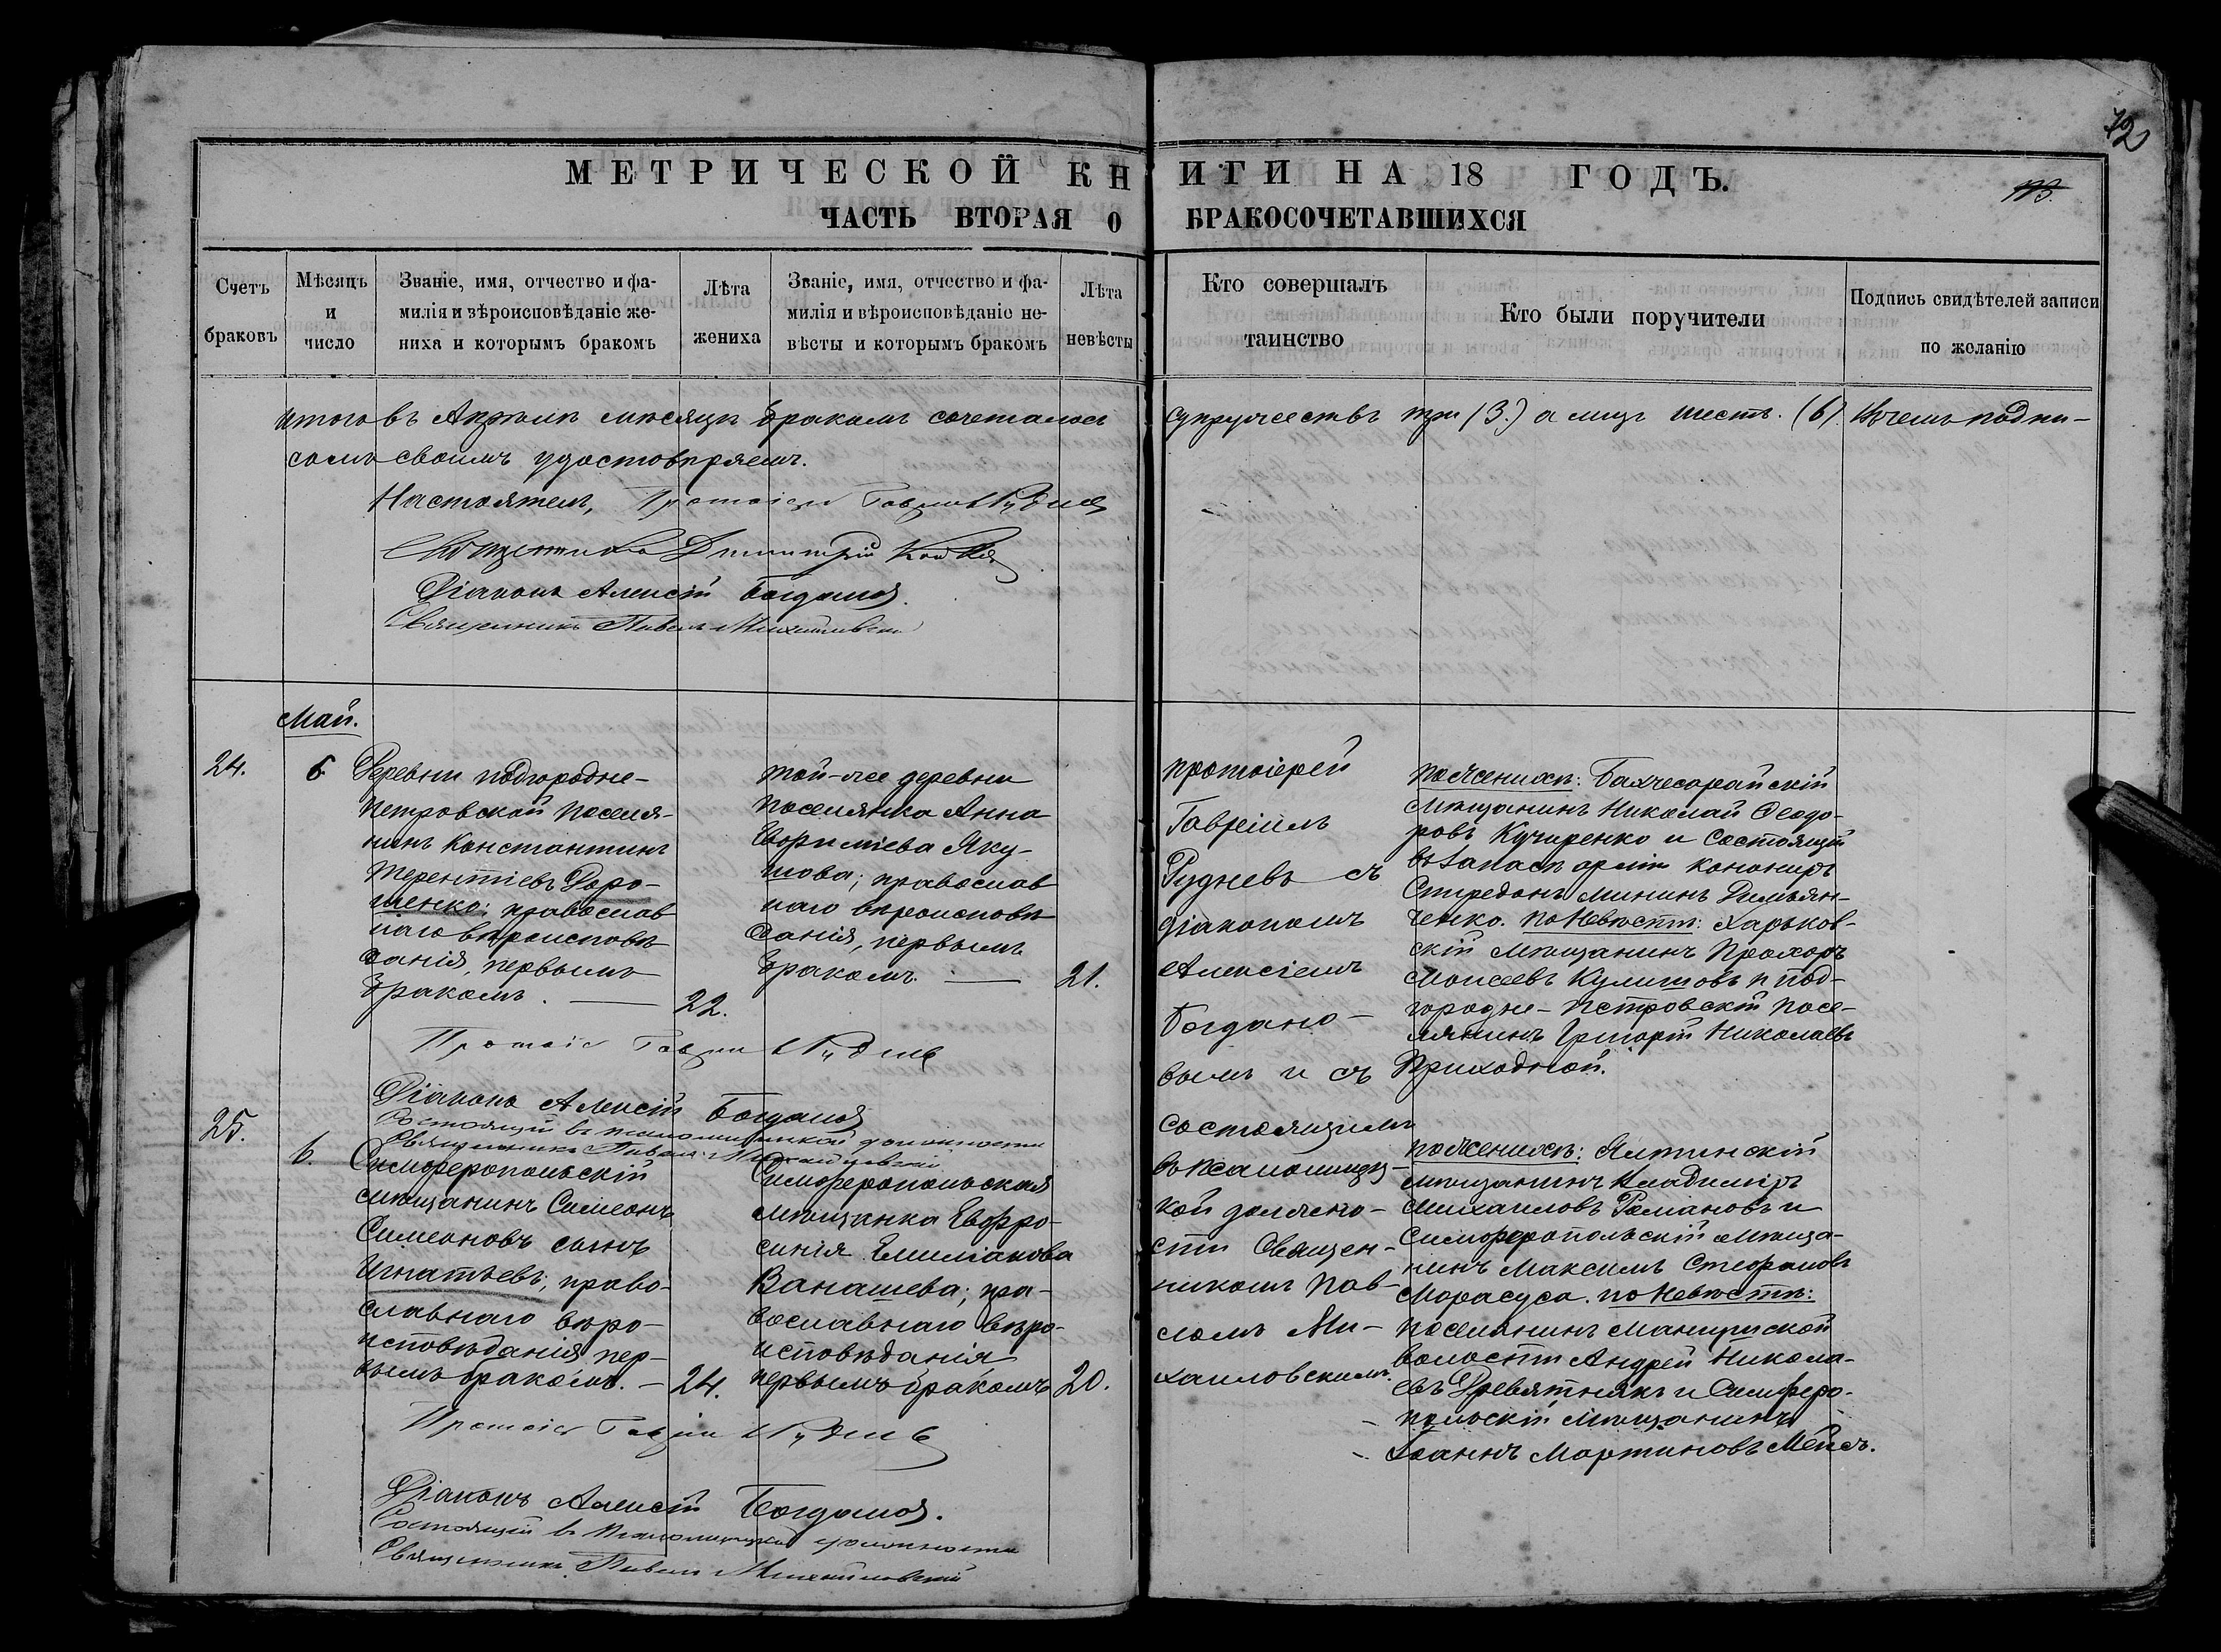 72
МЕТРИЧЕСКОЙ КНИГИ НА 18 ГОДЪ.
ЧАСТЬ ВТОРАЯ О БРАКОСОЧЕТАВШИХСЯ
Счетъ браковъ
Мѣсяцъ и число
Званіе, имя, отчество и фа-
милія и вѣроисповѣданіе же-
ниха и которымъ бракомъ
Лѣта жениха
Званіе, имя, отчество и фа-
милія и вѣроисповѣданіе не-
вѣсты и которымъ бракомъ
Лѣта невѣсты
Кто совершалъ таинство
Кто были поручители
Подпись свидѣтелей записи по желанію
итого въ Апрѣлѣ мѣсяцѣ бракомъ сочеталось супружествъ три (3.) а лицъ шесть. (6). Въ чемъ подпи-
сомъ своимъ удостовѣряемъ.
Настоятель, Протоіер Гавріил Руднев
Священникъ Димитрій
Діаконъ Алексій Богданов.
Священникъ Павелъ Михайловскі
Май.
24.
6
Деревни подгородне-
петровской поселя-
нинъ Константинъ
Терентіевъ Доро-
шенко; православ
наго вѣроисповѣ
данія, первымъ
бракомъ. —
22.
той-же деревни
поселянка Анна
Евфиміева Яку-
шова; православ
наго вѣроисповѣ
данія, первымъ
бракомъ. —
21.
Протоіе Гавріи Руднев
Діаконъ Алексій Богданов
Состоящій въ псаломщицкой должности
Священникъ Павелъ Михайловскій
протоіерей
Гавріилъ
Рудневъ съ
діакономъ
Алексіемъ
Богдано-
вымъ и съ
состоящимъ
въ псаломщиц-
кой должно-
сти Священ-
никомъ Пав-
ломъ Ми-
хайловскимъ.
по женихѣ: Бахчесарайскій
мѣщанинъ Николай Ѳеодо-
ровъ Кучиренко и состоящій
въ запасѣ арміи канониръ
Спиредонъ Мининъ Димьян-
ченко. по Невѣстѣ: Харьков-
скій мѣщанинъ Прохоръ
Моисеевъ Кулишовъ и под-
городне-петровскій посе-
лянинъ Григорій Николаевъ
Приходной.
25.
6.
Симферопольскій
мѣщанинъ Симеонъ
Симеоновъ сынъ
Игнатьевъ; право-
славнаго вѣро-
исповѣданія, пер-
вымъ бракомъ. —
24.
Симферопольская
мѣщанка Евфро-
синія Емиліанова
Ванашева; пра-
вославнаго вѣро-
исповѣданія
первымъ бракомъ
20.
по женихѣ: Ялтинскій
мѣщанинъ Владиміръ
Михаиловъ Романовъ и
Симферопольскій мѣща-
нинъ Максимъ Стефановъ
Морасуса. по Невѣстѣ:
поселянинъ Мангушской
волости Андрей Никола-
евъ Древятнякъ и Симферо-
польскій мѣщанинъ
Іоаннъ Мартиновъ Мейсъ.
Протоіе Гавріи Руднев
Діаконъ Алексій Богданов.
Состоящій въ псаломщицкой должности
Священникъ Павелъ Михайловскій